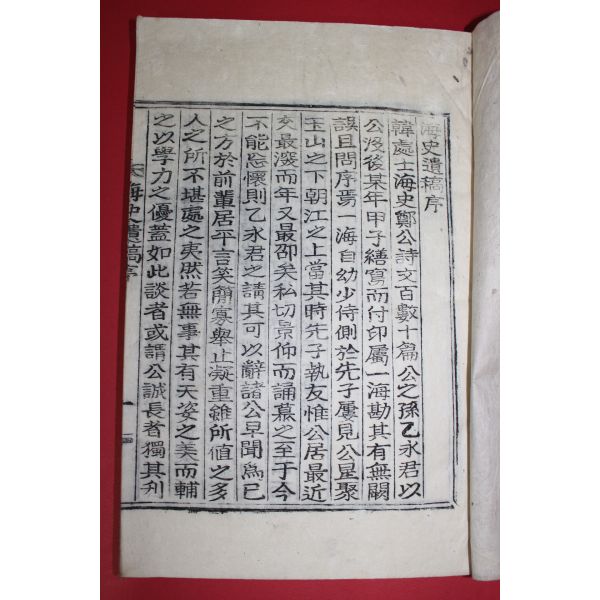 海史遺稿序
韓處士海史鄭公詩文百數十篇公之孫乙永君以
公沒後某年甲子繕寫而付印屬一海勘其有無闕
誤且問序焉一海自幼少侍側於先子屢見公星聚
玉山之下朝江之上當其時先子執友惟公居最近
交最深而年又最卲矣私切景仰而誦慕之至于今
不能忘懷則乙永君之請其可以辭諸公早聞爲己
之方於前輩居平言笑簡寡舉止凝重雖所値之多
人之所不堪處之夷然若無事其有天姿之美而輔
之以學力之優蓋如此談者或謂公誠長者獨其利
海史遺稿序
一